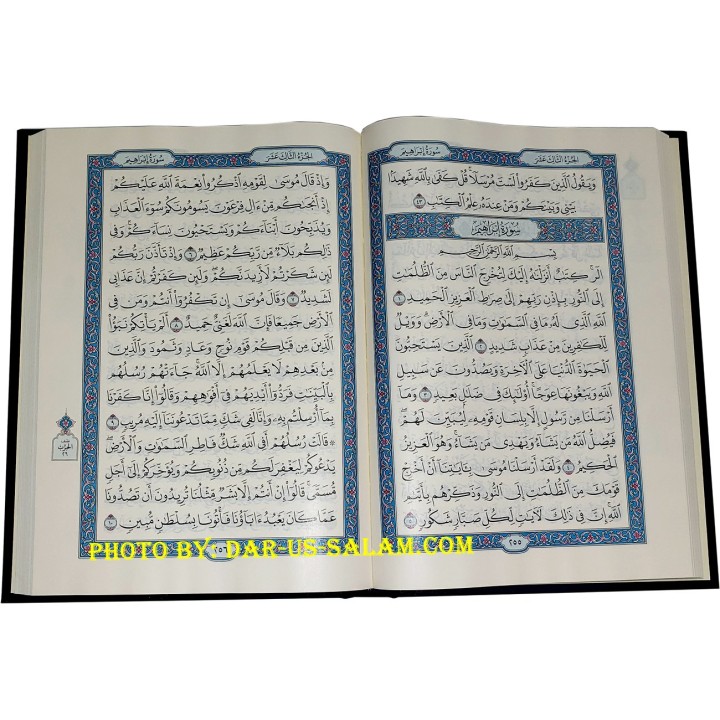 سورة إبراهيم
الجزء الثالث عشر
وَيَقُولُ الَّذِينَ كَفَرُوا لَسْتَ مُرْسَلًا قُلْ كَفَىٰ بِاللَّهِ شَهِيدًا
بَيْنِي وَبَيْنَكُمْ وَمَنْ عِندَهُ عِلْمُ الْكِتَابِ ٤٣
سُورَةُ إِبْرَاهِيمَ
بِسْمِ اللَّهِ الرَّحْمَٰنِ الرَّحِيمِ
الر كِتَابٌ أَنزَلْنَاهُ إِلَيْكَ لِتُخْرِجَ النَّاسَ مِنَ الظُّلُمَاتِ
إِلَى النُّورِ بِإِذْنِ رَبِّهِمْ إِلَىٰ صِرَاطِ الْعَزِيزِ الْحَمِيدِ ١
اللَّهِ الَّذِي لَهُ مَا فِي السَّمَاوَاتِ وَمَا فِي الْأَرْضِ وَوَيْلٌ
لِّلْكَافِرِينَ مِنْ عَذَابٍ شَدِيدٍ ٢ الَّذِينَ يَسْتَحِبُّونَ
الْحَيَاةَ الدُّنْيَا عَلَى الْآخِرَةِ وَيَصُدُّونَ عَن سَبِيلِ
اللَّهِ وَيَبْغُونَهَا عِوَجًا أُولَٰئِكَ فِي ضَلَالٍ بَعِيدٍ ٣ وَمَا
أَرْسَلْنَا مِن رَّسُولٍ إِلَّا بِلِسَانِ قَوْمِهِ لِيُبَيِّنَ لَهُمْ
فَيُضِلُّ اللَّهُ مَن يَشَاءُ وَيَهْدِي مَن يَشَاءُ وَهُوَ الْعَزِيزُ
الْحَكِيمُ ٤ وَلَقَدْ أَرْسَلْنَا مُوسَىٰ بِآيَاتِنَا أَنْ أَخْرِجْ
قَوْمَكَ مِنَ الظُّلُمَاتِ إِلَى النُّورِ وَذَكِّرْهُم بِأَيَّامِ
اللَّهِ إِنَّ فِي ذَٰلِكَ لَآيَاتٍ لِّكُلِّ صَبَّارٍ شَكُورٍ ٥
٢٥٥
سورة إبراهيم
الجزء الثالث عشر
وَإِذْ قَالَ مُوسَىٰ لِقَوْمِهِ اذْكُرُوا نِعْمَةَ اللَّهِ عَلَيْكُمْ
إِذْ أَنجَاكُم مِّنْ آلِ فِرْعَوْنَ يَسُومُونَكُمْ سُوءَ الْعَذَابِ
وَيُذَبِّحُونَ أَبْنَاءَكُمْ وَيَسْتَحْيُونَ نِسَاءَكُمْ وَفِي
ذَٰلِكُم بَلَاءٌ مِّن رَّبِّكُمْ عَظِيمٌ ٦ وَإِذْ تَأَذَّنَ رَبُّكُمْ
لَئِن شَكَرْتُمْ لَأَزِيدَنَّكُمْ وَلَئِن كَفَرْتُمْ إِنَّ عَذَابِي
لَشَدِيدٌ ٧ وَقَالَ مُوسَىٰ إِن تَكْفُرُوا أَنتُمْ وَمَن فِي
الْأَرْضِ جَمِيعًا فَإِنَّ اللَّهَ لَغَنِيٌّ حَمِيدٌ ٨ أَلَمْ يَأْتِكُمْ نَبَأُ
الَّذِينَ مِن قَبْلِكُمْ قَوْمِ نُوحٍ وَعَادٍ وَثَمُودَ وَالَّذِينَ
مِن بَعْدِهِمْ لَا يَعْلَمُهُمْ إِلَّا اللَّهُ جَاءَتْهُمْ رُسُلُهُم
بِالْبَيِّنَاتِ فَرَدُّوا أَيْدِيَهُمْ فِي أَفْوَاهِهِمْ وَقَالُوا إِنَّا كَفَرْنَا
بِمَا أُرْسِلْتُم بِهِ وَإِنَّا لَفِي شَكٍّ مِّمَّا تَدْعُونَنَا إِلَيْهِ مُرِيبٍ ٩
۞ قَالَتْ رُسُلُهُمْ أَفِي اللَّهِ شَكٌّ فَاطِرِ السَّمَاوَاتِ وَالْأَرْضِ
يَدْعُوكُمْ لِيَغْفِرَ لَكُم مِّن ذُنُوبِكُمْ وَيُؤَخِّرَكُمْ إِلَىٰ أَجَلٍ
مُّسَمًّى قَالُوا إِنْ أَنتُمْ إِلَّا بَشَرٌ مِّثْلُنَا تُرِيدُونَ أَن تَصُدُّونَا
عَمَّا كَانَ يَعْبُدُ آبَاؤُنَا فَأْتُونَا بِسُلْطَانٍ مُّبِينٍ ١٠
الحزب
٢٦
PHOTO BY: DAR-US-SALAM.COM